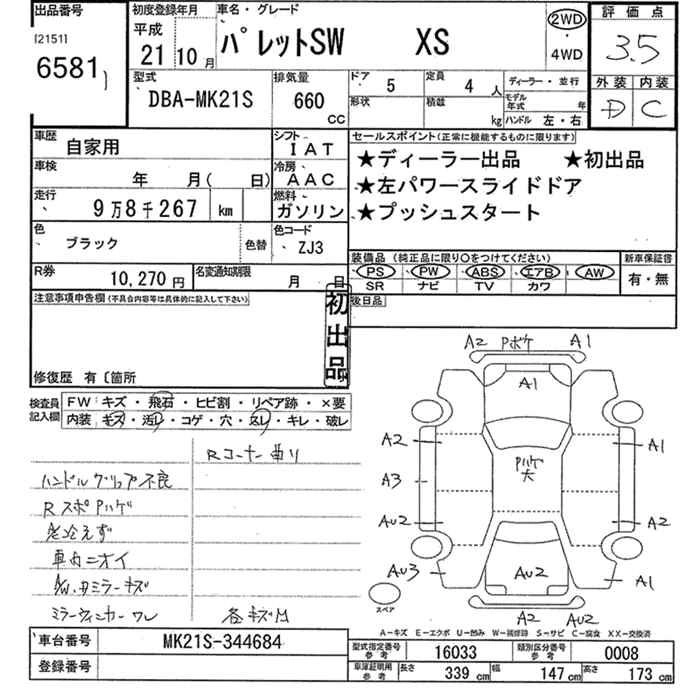 出品番号
[2151]
6581
初度登録年月
平成
21 10 月
車名・グレード
パレットSW XS
2WD
・
4WD
評価点
3.5
外装 内装
D C
型式
DBA-MK21S
排気量
660 CC
ドア 5
形状
定員 4 人
積載 kg
ディーラー・並行
モデル年式 年
ハンドル 左・右
車歴
自家用
シフト
IAT
車検
年 月( 日)
冷房
AAC
走行
9万8千267 km
燃料
ガソリン
色
ブラック
色替
色コード
ZJ3
R券
10,270 円
名変通知期限
月 日
セールスポイント(正常に機能するものに限ります)
★ディーラー出品 ★初出品
★左パワースライドドア
★プッシュスタート
装備品(純正品に限り○をつけてください)
PS PW ABS エアB AW
SR ナビ TV カワ
新車保証書
有・無
後日品
注意事項申告欄(不具合内容等は具体的に記入して下さい)
初出品
修復歴 有〔箇所
検査員記入欄
FW キズ・飛石・ヒビ割・リペア跡・×要
内装 キズ・汚レ・コゲ・穴・返レ・キレ・破レ
Rコーナー曲り
ハンドルグリップ不良
RスポPハゲ
冷えず
車内ニオイ
A/W、ミラーキズ
ミラーウィンカーワレ
各キズ凹
A2 Pボケ A1
A1
A2 A1
Pハゲ大
A3
AU2 A2
AU3 AU2 A1
スペア
A2 AU2
A-キズ E-エクボ U-凹み W-補修跡 S-サビ C-腐食 XX-交換済
車台番号
MK21S-344684
登録番号
型式指定番号 参考
16033
類別区分番号 参考
0008
車庫証明用 参考
長さ 339 cm
幅 147 cm
高さ 173 cm